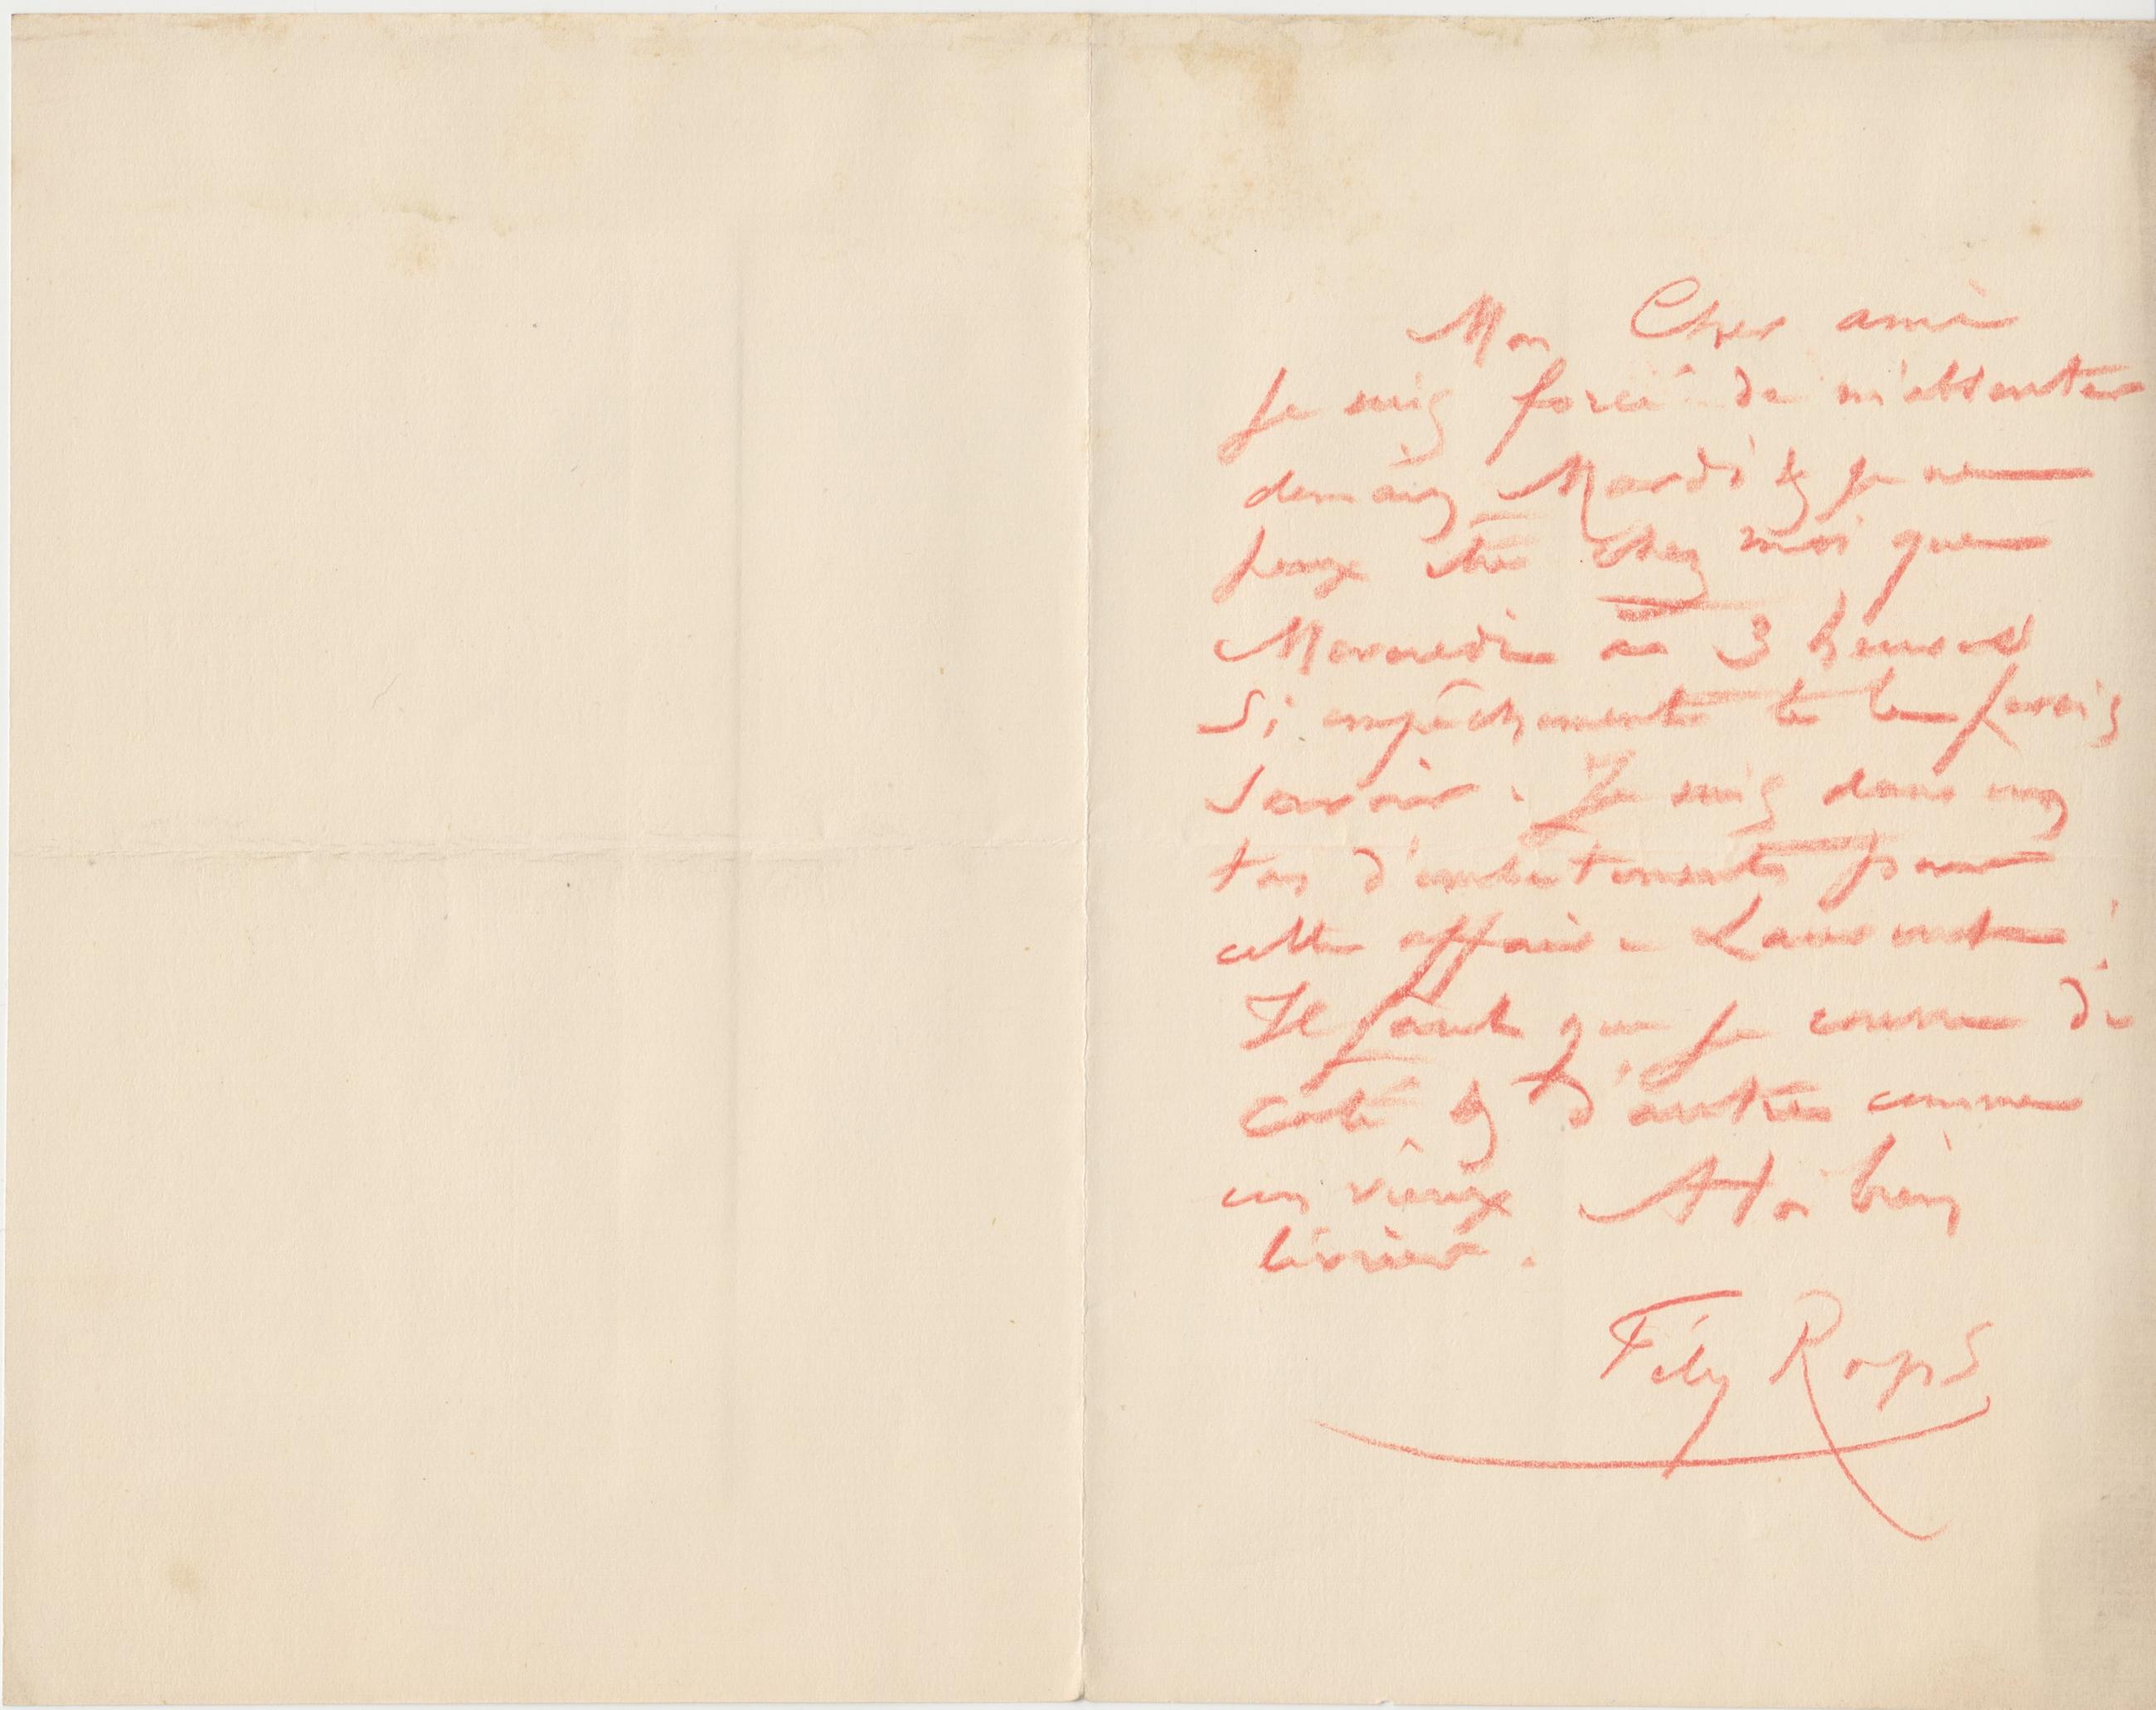 Mon Cher ami
Je suis forcé de m'absenter
demain Mardi & je ne
peux être chez moi que
Mercredi à 3 heures
Si empêchement te le ferais
Savoir. Je suis dans un
tas d'embêtements pour
cette affaire
Il faut que je courre de
Coté & d'autre comme
un vieux A toi bien
lévrier.
Fély Rops